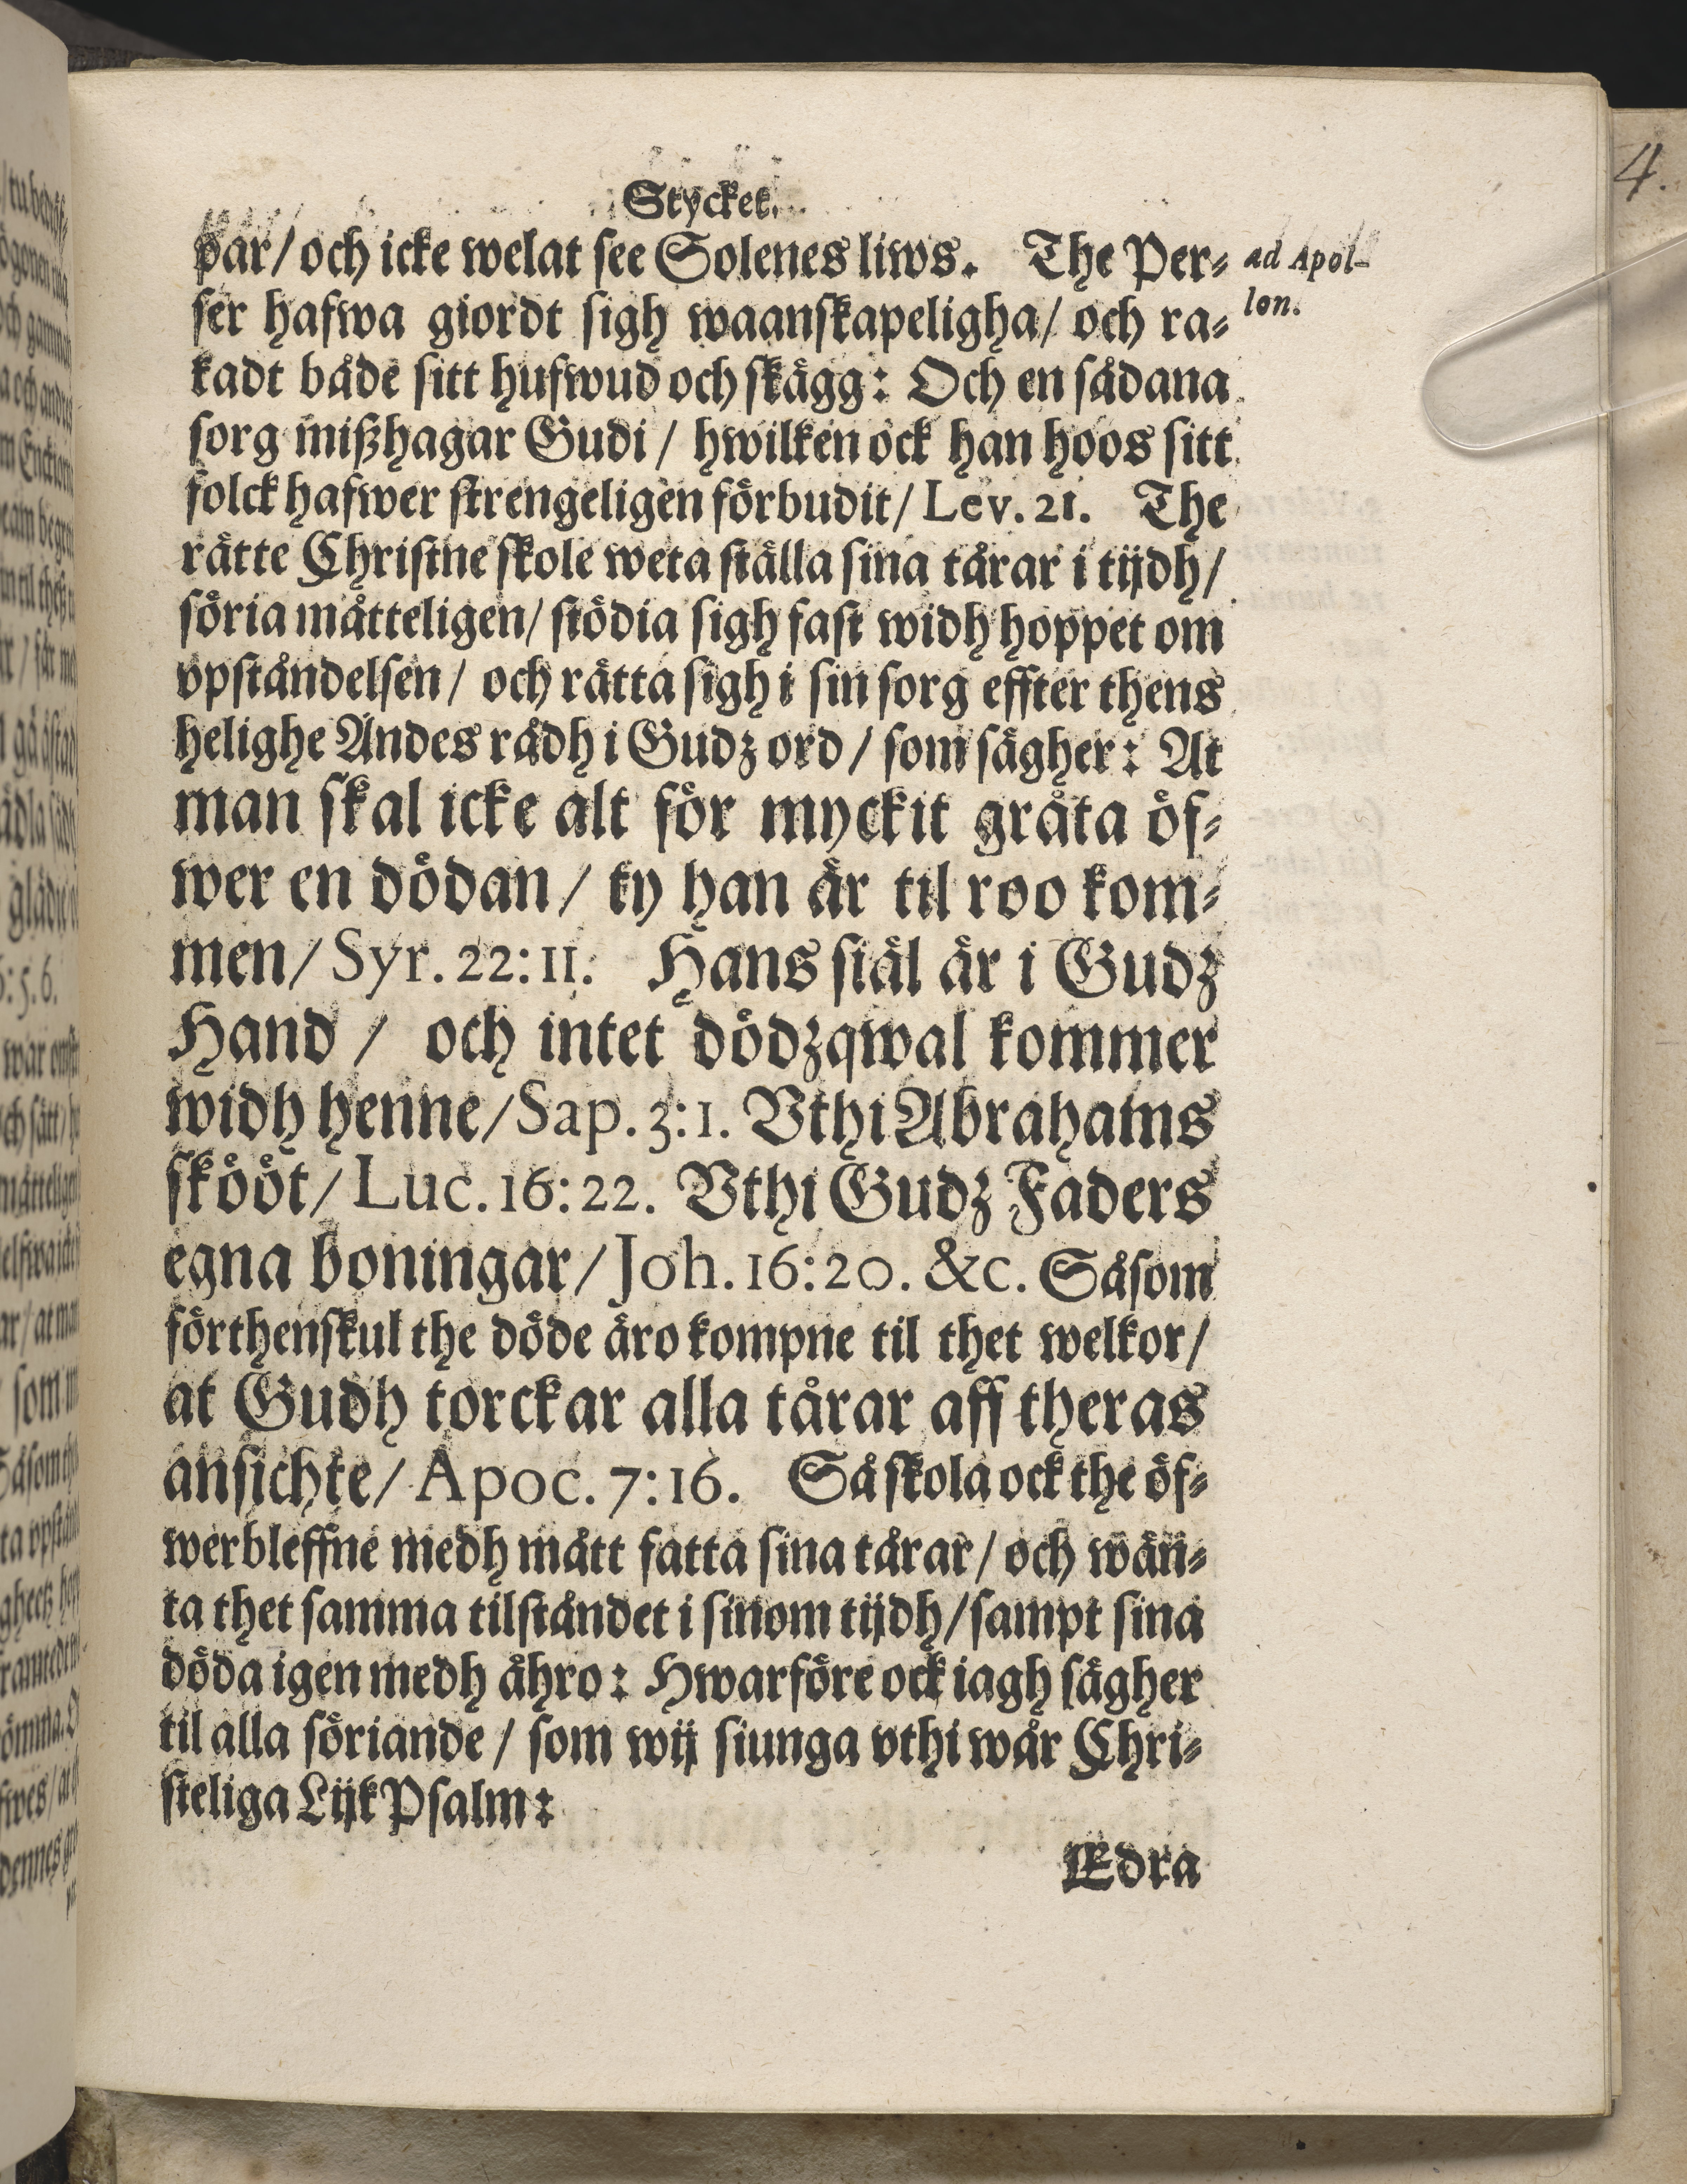 Stycket.
par/ och icke welat see Solenes liws. The Per-
ad Apol-
ser hafwa giordt sigh waanskapeligha/ och ra-
lon.
kadt både sitt hufwud och skägg: Och en sådana
sorg mißhagar Gudi / hwilken ock han hoos sitt
folck hafwer strengeligen förbudit/ Lev. 21. The
rätte Christne skole weta ställa sina tårar i tijdh/
söria måtteligen/ stödia sigh fast widh hoppet om
vpståndelsen / och rätta sigh i sin sorg effter thens
helighe Andes rådh i Gudz ord / som sägher: At
man skal icke alt för myckit gråta öf-
wer en dödan / ty han är til roo kom-
men/ Syr. 22:11. Hans siäl är i Gudz
Hand / och intet dödzqwal kommer
widh henne/Sap. 3:1. Vthi Abrahams
skööt/ Luc. 16:22. Vthi Gudz Faders
egna boningar/Joh. 16:20. &c. Såsom
förthenskul the döde äro kompne til thet welkor/
at Gudh torckar alla tårar aff theras
ansichte/ Apoc. 7:16. Så skola ock the öf-
werbleffne medh mått fatta sina tårar/ och wän-
ta thet samma tilståndet i sinom tijdh/sampt sina
döda igen medh ähro: Hwarföre ock iagh sägher
til alla söriande / som wij siunga vthi wår Chri-
steliga LijkPsalm:
Edra
4.